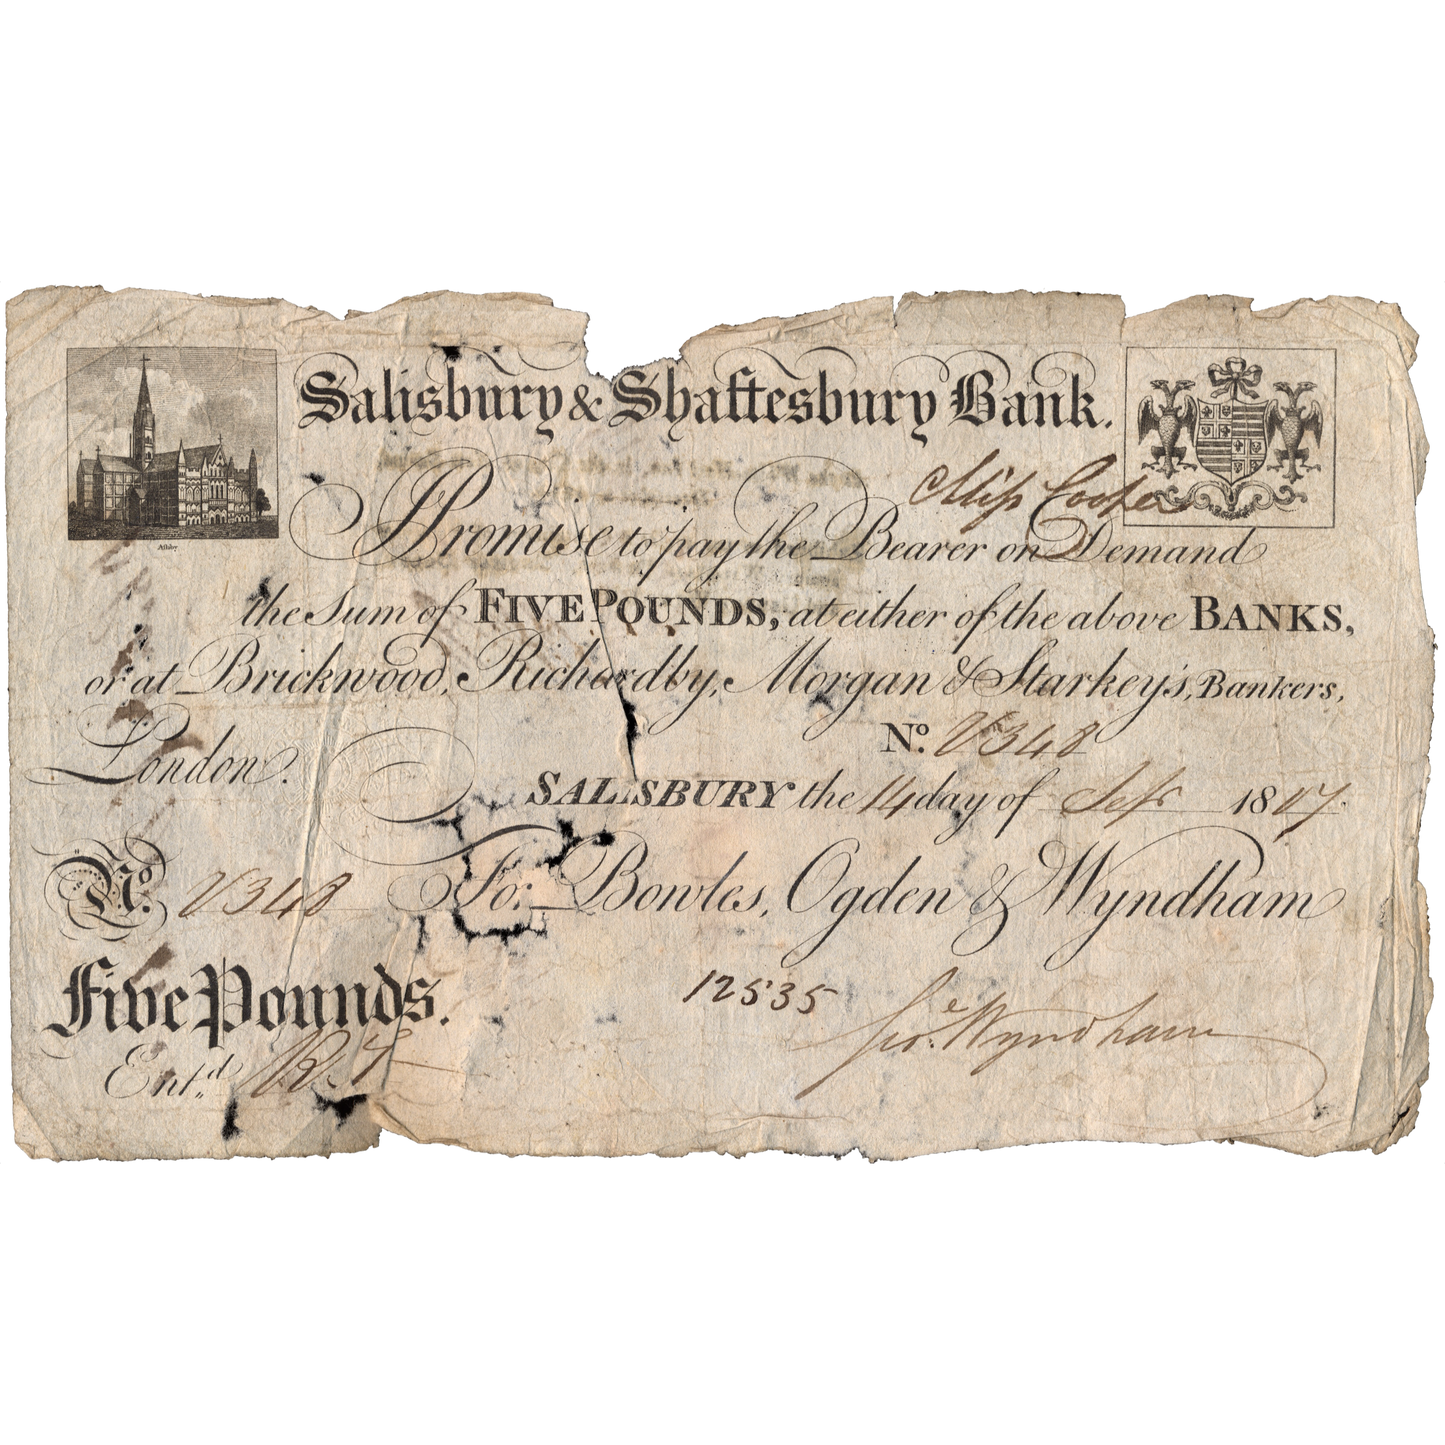 Salisbury & Shaftesbury Bank.
Miss Cooper
Promise to pay the Bearer on Demand
the Sum of FIVE POUNDS, at either of the above BANKS,
or at Brickwood, Richardby, Morgan & Starkey's, Bankers,
London.
No. V348
SALISBURY the 14 day of Sepr 1807
No. V348
For Bowles, Ogden & Wyndham
Five Pounds.
12535
Geoe. Wyndham
Entd.
Ashby